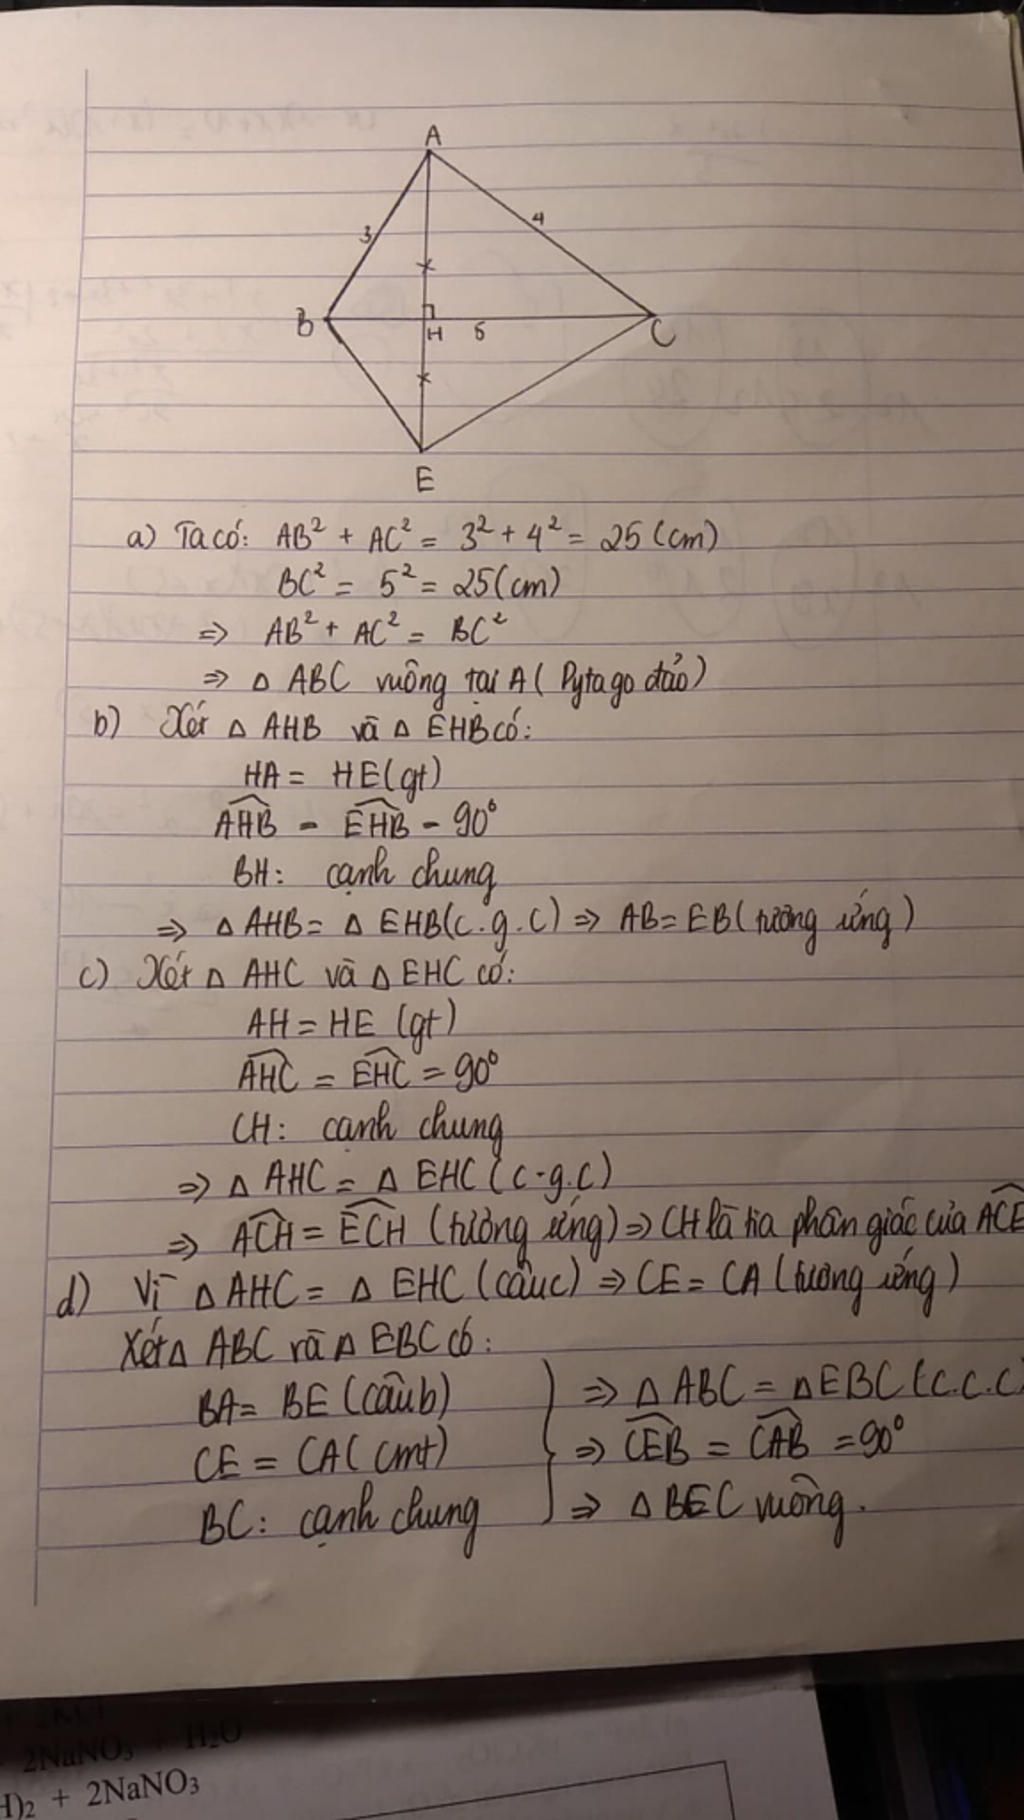 A
3
4
B
H
5
C
E
a) Ta có: AB² + AC² = 3² + 4² = 25 (cm)
BC² = 5² = 25 (cm)
⇒ AB² + AC² = BC²
⇒ △ ABC vuông tại A ( Pytago đảo)
b) Xét △ AHB và △ EHB có:
HA = HE (gt)
\widehat{AHB} = \widehat{EHB} = 90°
BH: cạnh chung
⇒ △ AHB = △ EHB (c.g.c) ⇒ AB = EB (tương ứng)
c) Xét △ AHC và △ EHC có:
AH = HE (gt)
\widehat{AHC} = \widehat{EHC} = 90°
CH: cạnh chung
⇒ △ AHC = △ EHC (c.g.c)
⇒ \widehat{ACH} = \widehat{ECH} (tương ứng) ⇒ CH là tia phân giác của \widehat{ACE}
d) Vì △ AHC = △ EHC (câu c) ⇒ CE = CA (tương ứng)
Xét △ ABC và △ EBC có:
BA = BE (câu b) ⇒ △ ABC = △ EBC (c.c.c)
CE = CA (cmt) ⇒ \widehat{CEB} = \widehat{CAB} = 90°
BC: cạnh chung ⇒ △ BEC vuông.
2NaNO₃ + H₂O
H)₂ + 2NaNO₃